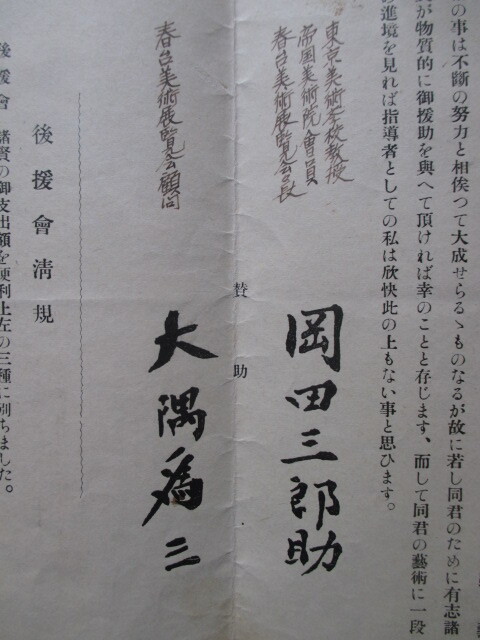 の事は不斷の努力と相俟つて大成せらるゝものなるが故に若し同君のために有志諸
が物質的に御援助を與へて頂ければ幸のことと存じます、而して同君の藝術に一段
進境を見れば指導者としての私は欣快此の上もない事と思ひます。
東京美術学校教授
帝国美術院會員
春台美術展覧会会長
岡田三郎助
賛助
春台美術展覧会顧問
大隅為三
後援會淸規
後援會諸賢の御支出額を便利上左の三種に別ちました。